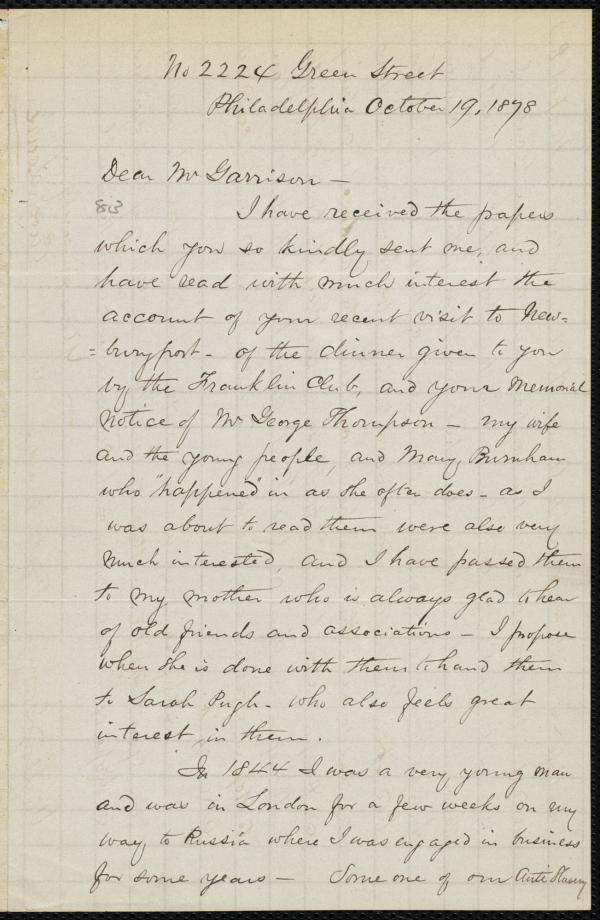 No 2224 Green Street
Philadelphia October 19, 1878
Dear Mr Garrison —
813
I have received the papers
which you so kindly sent me, and
have read with much interest the
account of your recent visit to New=
=buryport - of the dinner given to you
by the Franklin Club, and your Memorial
Notice of Mr George Thompson — my wife
and the young people, and Mary Burnham
who "happened" in as she often does - as I
was about to read them were also very
much interested, and I have passed them
to my mother who is always glad to hear
of old friends and associations — I propose
when she is done with them to hand them
to Sarah Pugh - who also feels great
interest in them.
In 1844 I was a very young man
and was in London for a few weeks on my
way to Russia where I was engaged in business
for some years — Some one of our Anti Slavery